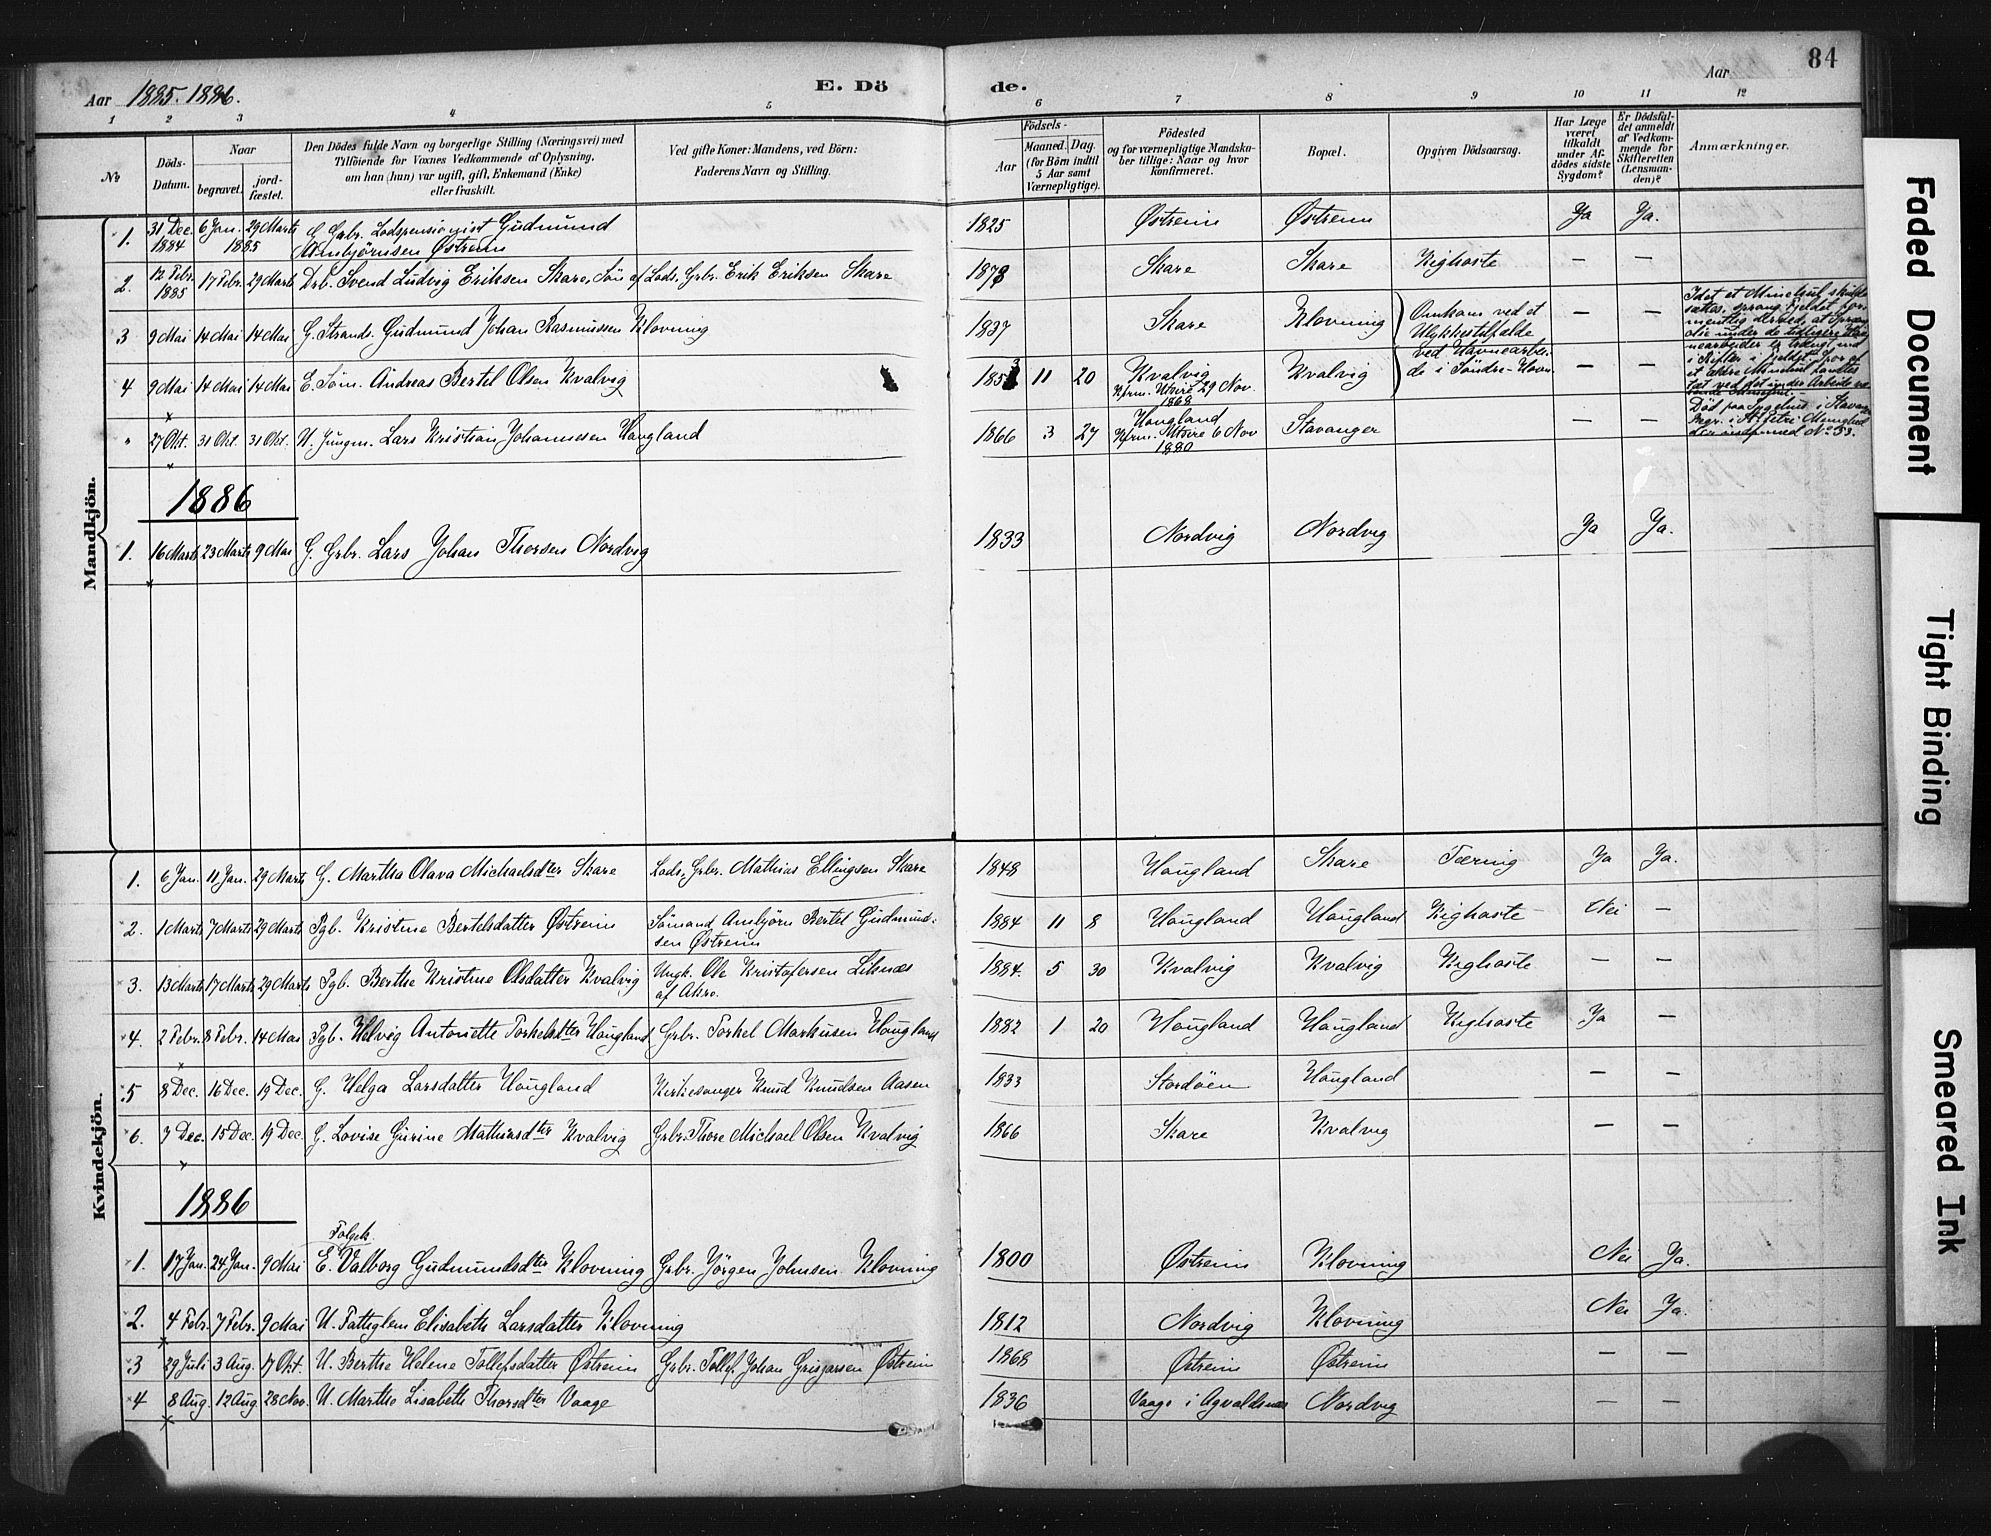 84
Aar 1885. 1886. E. Dö de. Aar
1 2 3 4 5 6 7 8 9 10 11 12
No Döds-Datum. Naar begravet. jordfæstet. Den Dödes fulde Navn og borgerlige Stilling (Næringsvei) med Tilföiende for Voxnes Vedkommende af Oplysning, om han (hun) var ugift, gift, Enkemand (Enke) eller fraskilt. Ved gifte Koner: Mandens, ved Börn: Faderens Navn og Stilling. Födsels- Aar Maaned. Dag. (for Börn indtil 5 Aar samt Værnepligtige). Födested og for værnepligtige Mandskaber tillige: Naar og hvor konfirmeret. Bopæl. Opgiven Dödsaarsag. Har Læge været tilkaldt under Afdödes sidste Sygdom? Er Dödsfaldet anmeldt af Vedkommende for Skifteretten (Lensmanden)? Anmærkninger.
Mandkjön.
1. 31 Dec. 1884 6 Jan. 1885 29 Marts G. Grbr. Lodspensionist Gudmund Ambjörnsen Østrem 1825 Østrem Østrem Ja Ja.
2. 12 Febr. 1885 17 Febr. 29 Marts Drb. Svend Ludvig Eriksen Skare, Sön af Lods, Grbr. Erik Eriksen Skare 1878 Skare Skare Kighoste — —
3 9 Mai 14 Mai 14 Mai G. Strands. Gudmund Johan Rasmussen Klovning 1837 Skare Klovning Omkom ved et Ulykkestilfælde ved Havnearbeide i Söndre-Havn — — Idet et Minehul skulde sættes, sprang Fjeldet
4 9 Mai 14 Mai 14 Mai E. Söm. Andreas Bertel Olsen Kvalvig 1853 11 20 Kvalvig Kfrm. Utsire 29 Nov. 1868 Kvalvig — —
" 27 Okt. 31 Okt. 31 Okt. U. Jungm. Lars Kristian Johannesen Hougland 1866 3 27 Hougland Kfrm. Utsire 6 Nov 1880 Stavanger — — Död paa Sygehus i Stavanger. Begr. i St. Petri Menighed No 53.
1886
1. 16 Marts 23 Marts 9 Mai G. Grbr. Lars Johan Thorsen Nordvig 1833 Nordvig Nordvig Ja Ja.
Kvindekjön.
1. 6 Jan. 11 Jan. 29 Marts G. Martha Olava Michaelsdter Skare Lods, Grbr. Mathias Ellingsen Skare 1848 Hougland Skare Tæring Ja Ja.
2. 1 Marts 7 Marts 29 Marts Pgb. Kristine Bertelsdatter Østrem Sömand Ambjörn Bertel Gudmundsen Østrem 1884 11 8 Hougland Hougland Kighoste Nei —
3. 13 Marts 17 Marts 29 Marts Pgb. Berthe Kristine Olsdatter Kvalvig Ungk. Ole Kristofersen Liknæs af Akre. 1884. 5 30 Kvalvig Kvalvig Kighoste — —
4. 2 Febr. 8 Febr. 14 Mai Pgb. Helvig Antonette Torkelsdtter Hougland Grbr. Torkel Markusen Hougland 1882 1 20 Hougland Hougland Kighoste Ja —
5 8 Dec. 16 Dec. 19 Dec. G. Helga Larsdatter Hougland Kirkesanger Knud Knudsen Aasen 1833 Stordöen Hougland — —
6. 7 Dec. 15 Dec. 19 Dec. G. Lovise Gurine Mathiasdter Kvalvig Grbr. Thore Michael Olsen Kvalvig 1866 Skare Kvalvig — —
1886
1. 17 Jan. 24 Jan. 9 Mai Folgek. E. Valborg Gudmundsdter Klovning Grbr. Jörgen Johnsen Klovning 1800 Østrem Klovning Nei Ja.
2. 4 Febr. 7 Febr. 9 Mai U. Fattiglem Elisabeth Larsdatter Klovning 1812 Nordvig Klovning Nei Ja.
3 29 Juli 3 Aug. 17 Okt. U. Berthe Helene Tollefsdatter Østrem Grbr. Tollef Johan Grisjarsen Østrem 1868 Østrem Østrem — —
4 8 Aug. 12 Aug. 28 Nov. U. Marthe Lisabeth Thorsdter Vaage 1836 Vaage i Agvaldsnæs Nordvig — —
Faded Document
Tight Binding
Smeared Ink